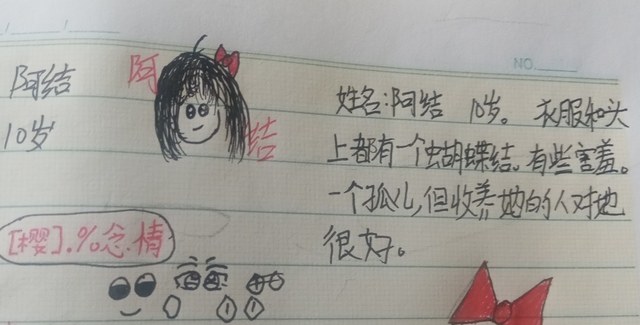 NO.
阿结
10岁
阿
结
姓名:阿结 10岁。衣服和头
上都有一个虫胡蝶结。有些害羞。
一个孤儿,但收养她的人对她
很好。
[樱].%念.情